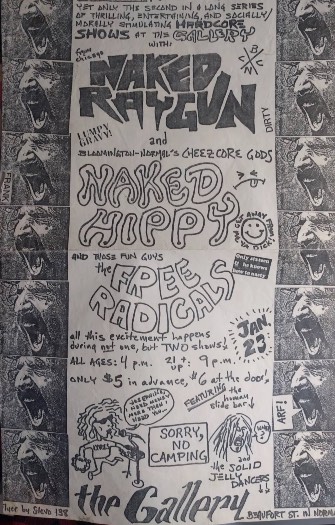 YET ONLY THE SECOND IN A LONG SERIES
OF THRILLING, ENTERTAINING, AND SOCIALLY
MORALLY STIMULATING HARDCORE
SHOWS AT THE GALLERY
WITH:
from Chicago
NAKED
RAYGUN
LUMPY
GRAVY!
DIRTY
FRANK
and
BLOOMINGTON-NORMAL'S CHEEZCORE GODS
NAKED
HIPPY
GO AWAY
AND THOSE FUN GUYS
the FREE
RADICALS
all this excitement happens
during not one, but TWO shows!
JAN.
23
ALL AGES: 4 p.m. 21 + up. 9 p.m.
ONLY $5 in advance, $6 at the door.
FEATURING the
human
slide bar
SORRY,
NO
CAMPING
ARF!
and
the SOLID
JELLY
DANCERS
the Gallery
BEAUFORT ST. IN